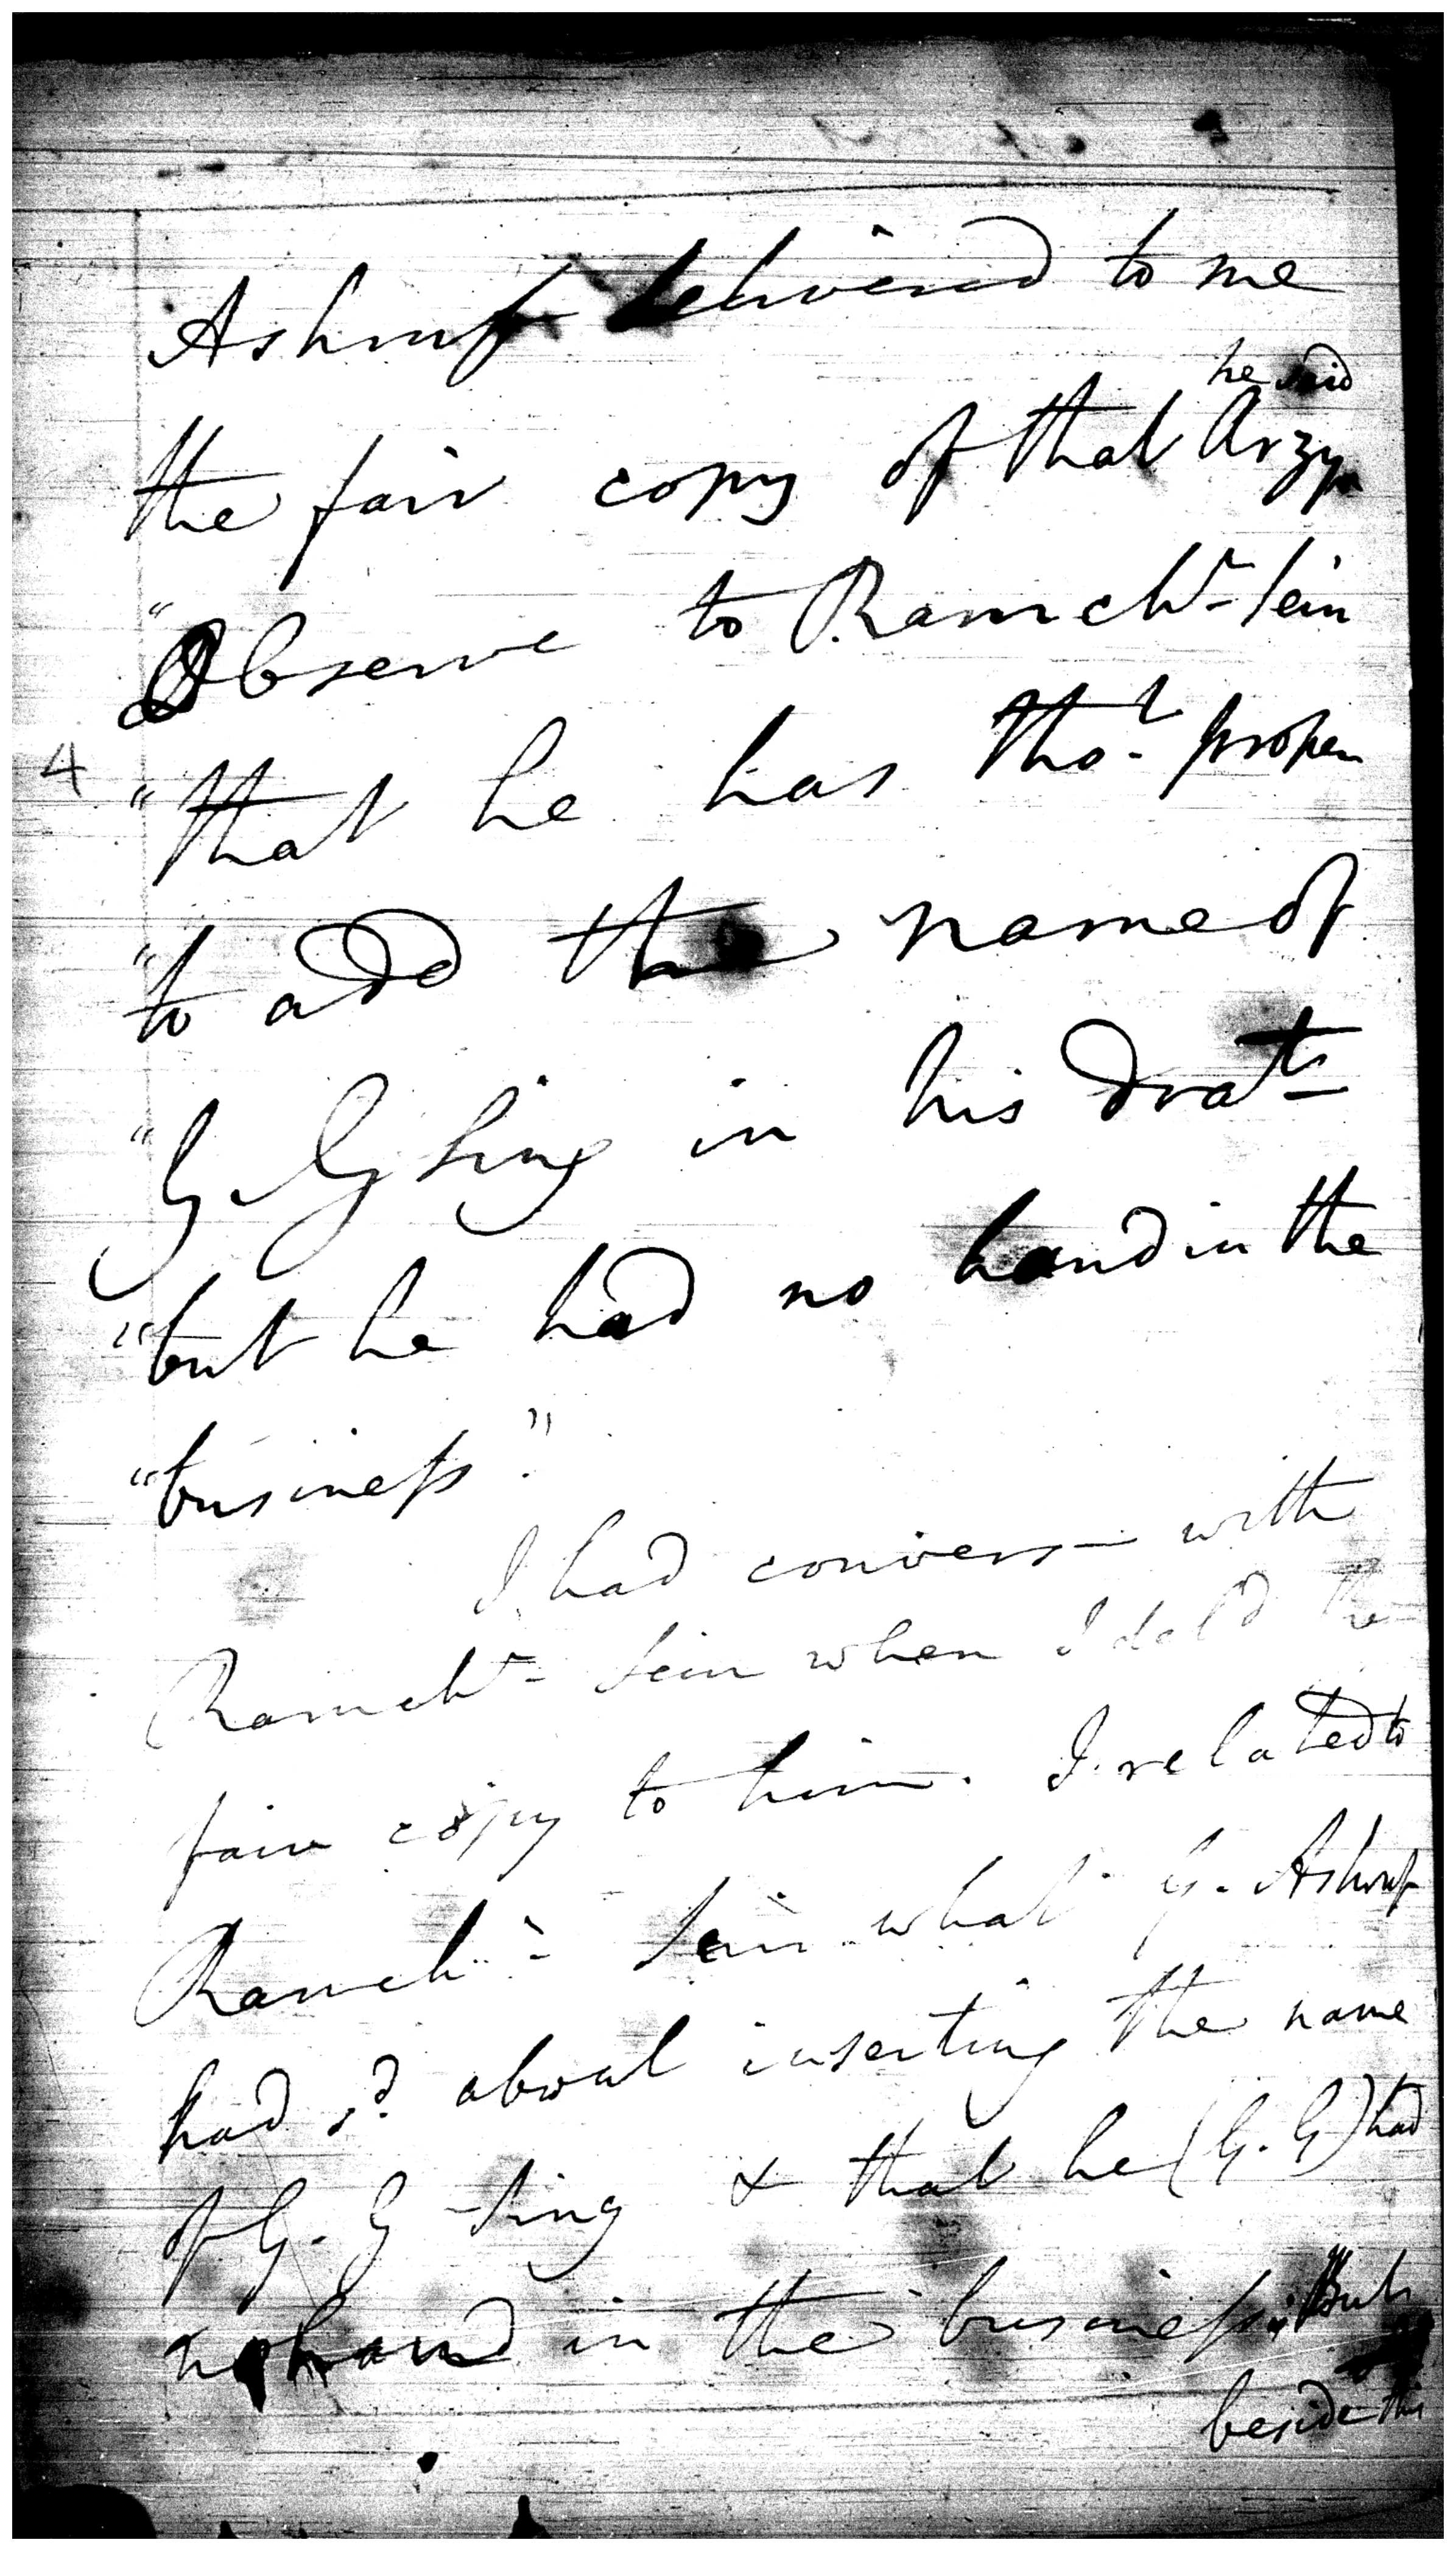 Ashruf delivered to me
he said
the fair copy of that Arzy
"Observe to Ramchr- Sein
4
"that he has thot- proper
"to add the name of
"G. G Sing in his drat-
"but he had no hand in the
"business."
I had convers- with
Ramchr- Sein when I deld the
fair copy to him. I related to
Ramchr- Sein what G. Ashruf
had sd about inserting the name
of G. G Sing & that he (G. G) had
no hand in the business. But
beside this